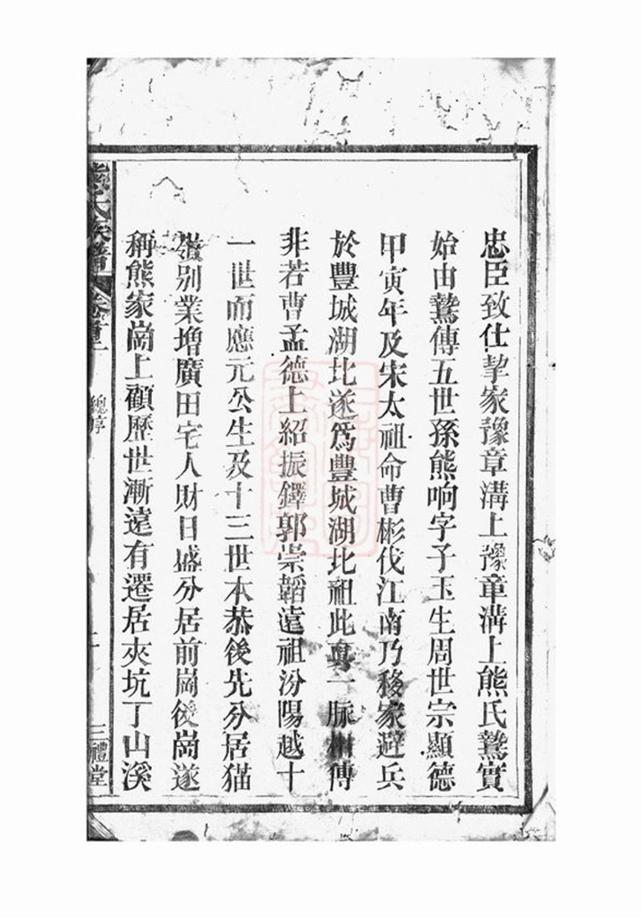 忠臣致仕挈家豫章溝上豫章溝上熊氏鶩實
始由鶩傳五世孫熊响字子玉生周世宗顯德
甲寅年及宋太祖命曹彬伐江南乃移家避兵
於豐城湖北遂爲豐城湖北祖此真一脉相傳
非若曹孟德上紹振鐸郭崇韜遠祖汾陽越十
一世而應元公生及十三世本恭後先分居猫
別業增廣田宅人財日盛分居前崗後崗遂
稱熊家崗上顧歷世漸遠有遷居夾坑丁山溪
熊氏族譜
卷首
總序
三禮堂